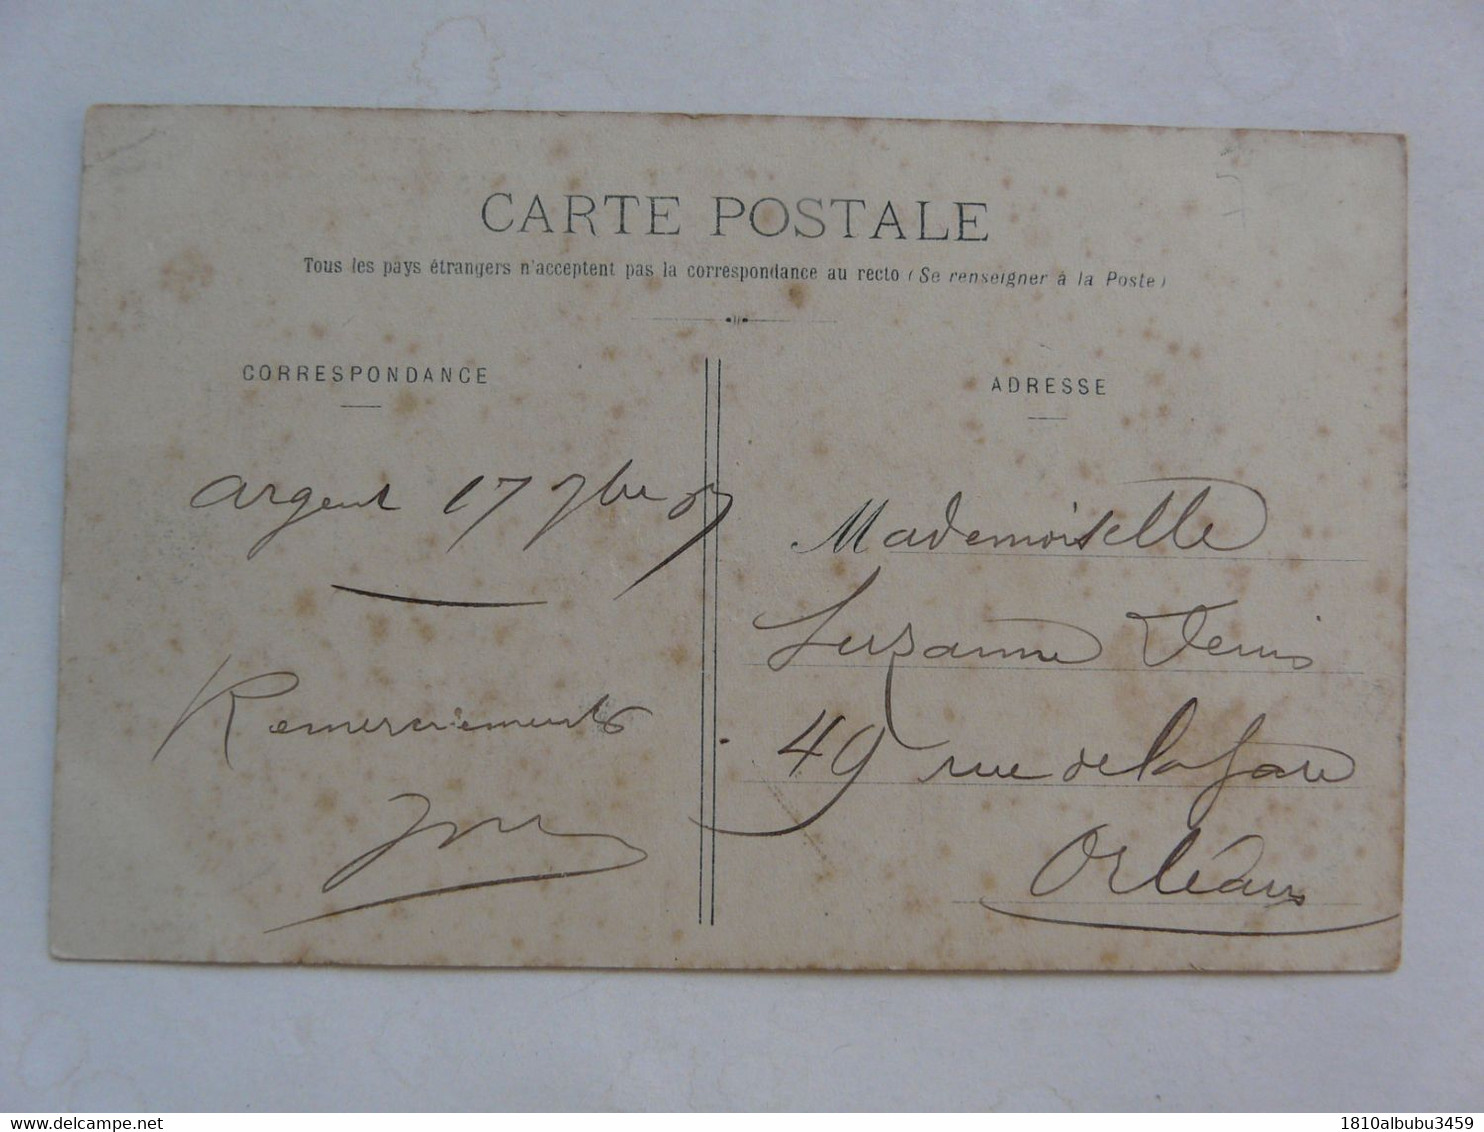 CARTE POSTALE
Tous les pays étrangers n'acceptent pas la correspondance au recto (Se renseigner à la Poste)
CORRESPONDANCE
argent 17 7bre 07
Remerciements
ADRESSE
Mademoiselle
Suzanne Denis
49 rue de la Gare
Orléans
www.delcampe.net
1810albubu3459